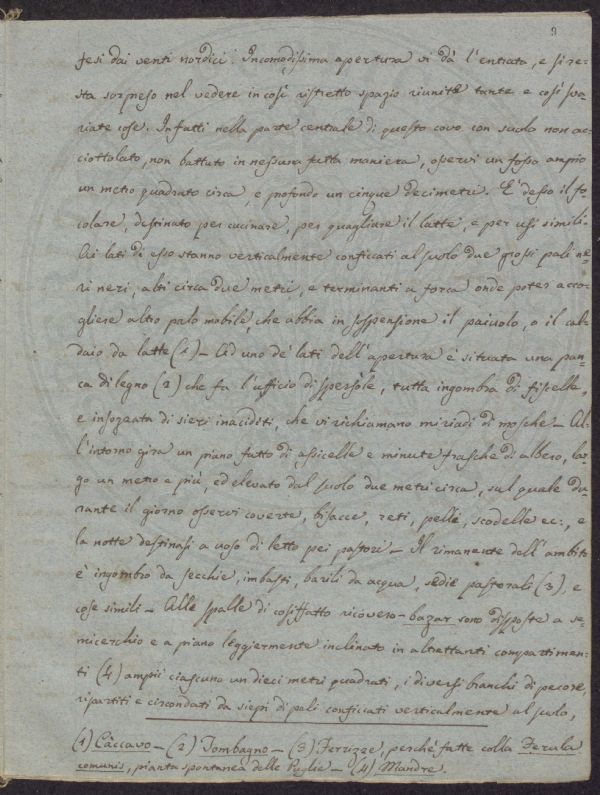 9
fesi dai venti nordici. Incomodissima apertura vi dà l'entrata, e si re=
sta sorpreso nel vedere in così ristretto spazio riunite tante e così sva=
riate cose. Infatti nella parte centrale di questo covo con suolo non ac=
ciottolato, non battuto in nessuna fatta maniera, osservi un fosso ampio
un metro quadrato circa, e profondo un cinque decimetri. E' desso il fo=
colare, destinato per cucinare, per quagliare il latte, e per usi simili.
Ai lati di esso stanno verticalmente conficcati al suolo due grossi pali ne=
ri neri, alti circa due metri, e terminanti a forca onde poter acco=
gliere altro palo mobile, che abbia in sospensione il paiuolo, o il cal=
daio da latte (1) – Ad uno de' lati dell'apertura è situata una pan=
ca di legno (2) che fa l'ufficio di spersole, tutta ingombra di fiscelle,
e insozzata di sieri inaciditi, che vi richiamano miriadi di mosche – Al=
l'intorno gira un piano fatto di assicelle e minute frasche di albero, lar=
go un metro e più, ed elevato dal suolo due metri circa, sul quale du=
rante il giorno osservi coverte, bisacce, reti, pelli, scodelle ec:, e
la notte destinasi a uso di letto pei pastori – Il rimanente dell'ambito
è ingombro da secchie, imbasti, barili da acqua, sedie pastorali (3), e
cose simili – Alle spalle di cosiffatto ricovero-bazar sono disposte a se=
micerchio e a piano leggiermente inclinato in altrettanti compartimen=
ti (4) ampii ciascuno un dieci metri quadrati, i diversi branchi di pecore,
ripartiti e circondati da siepi di pali conficcati verticalmente al suolo,
(1) Càccavo – (2) Tombagno – (3) Ferrizze, perché fatte colla Ferula
comunis, pianta spontanea delle Puglie – (4) Mandre.